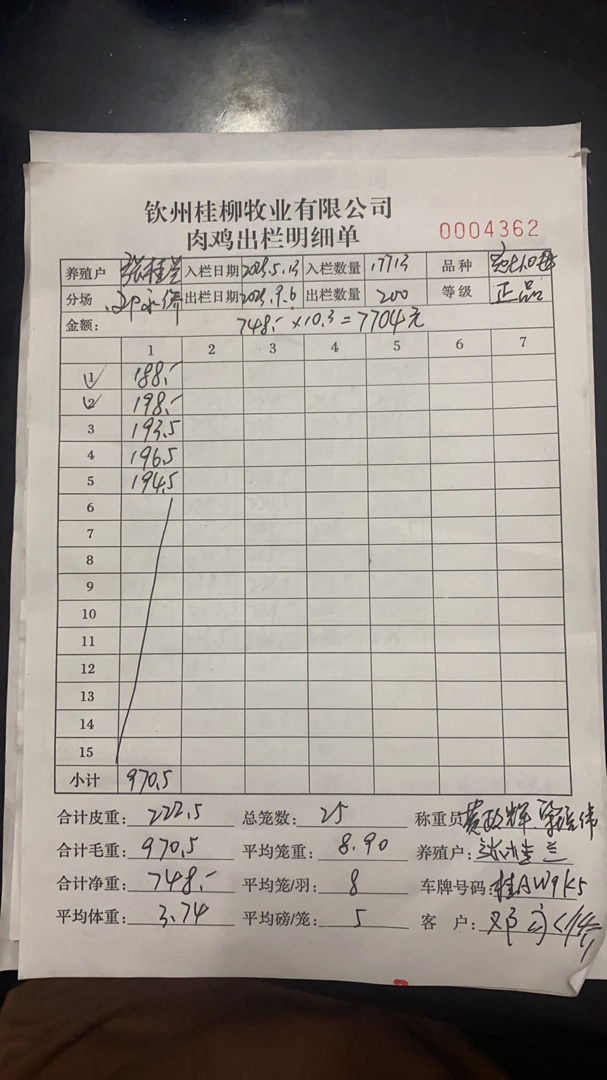 钦州桂柳牧业有限公司
肉鸡出栏明细单
0004362
养殖户 张桂兰 入栏日期 2023.5.13 入栏数量 17713 品种
分场 邓永 出栏日期 2023.9.6 出栏数量 200 等级 正品
金额: 748.- ×10.3=7704元
1 2 3 4 5 6 7
1 188.-
2 198.-
3 193.5
4 196.5
5 194.5
6
7
8
9
10
11
12
13
14
15
小计 970.5
合计皮重: 222.5 总笼数: 25 称重员 黄政辉
合计毛重: 970.5 平均笼重: 8.90 养殖户: 张桂兰
合计净重: 748.- 平均笼/羽: 8 车牌号码: 桂AW9K5
平均体重: 3.74 平均磅/笼: 5 客户: 邓永